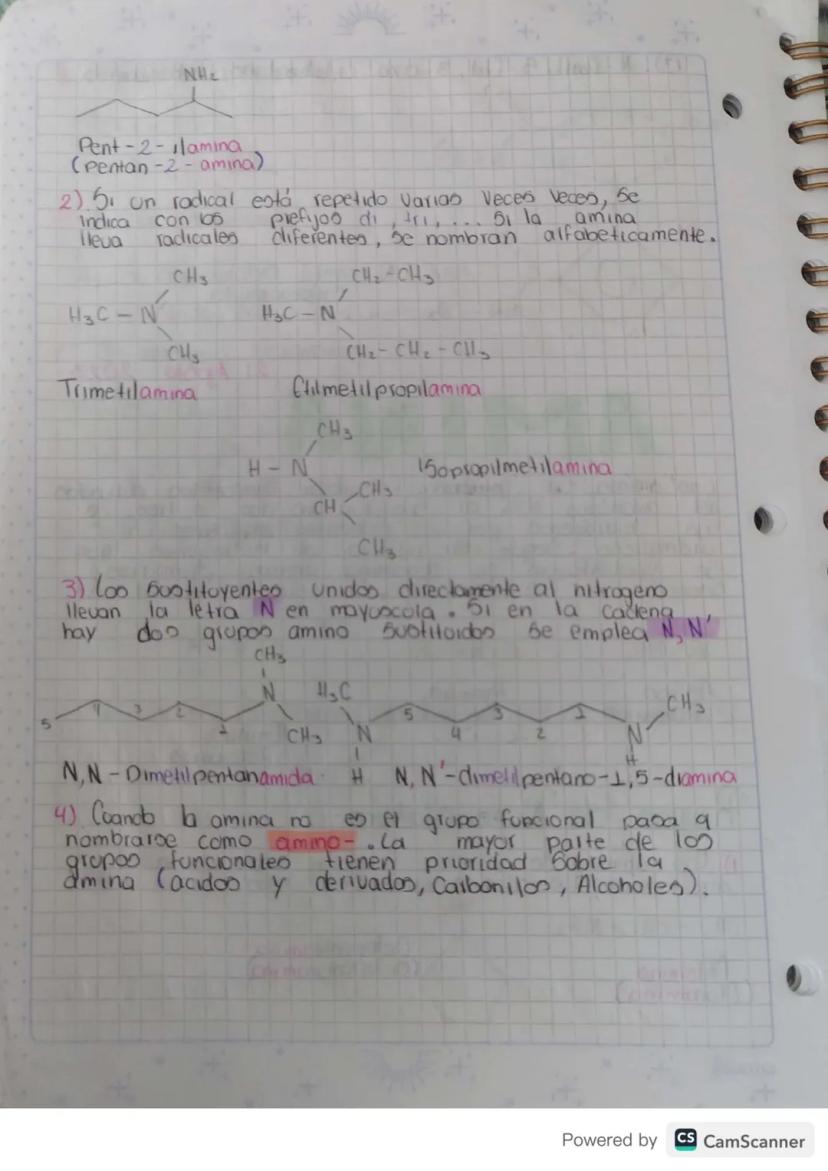 NH2
Pent-2-ilamina
(pentan-2-amina)
2) Si un radical está repetido varias veces veces, se
indica con los prefijos di, tri, ... Si la amina
lleva radicales diferentes, se nombran alfabeticamente.
CH3 CH2-CH3
H3C-N H3C-N
CH3 CH2-CH2-CH3
Trimetilamina Etilmetilpropilamina
CH3
H-N Isopropilmetilamina
CH3
CH
CH3
3) Los sustituyentes unidos directamente al nitrogeno
llevan la letra N en mayuscula. Si en la cadena
hay dos grupos amino sustituidos se emplea N, N'
CH3
N H3C CH3
5 4 3 2 1 5 4 3 2 1
CH3 N N
H
N,N-Dimetilpentanamida H N,N'-dimetilpentano-1,5-diamina
4) Cuando la amina no es el grupo funcional pasa a
nombrarse como amino-. La mayor parte de los
grupos funcionales tienen prioridad sobre la
amina (acidos y derivados, Carbonilos, Alcoholes).
Powered by CS CamScanner